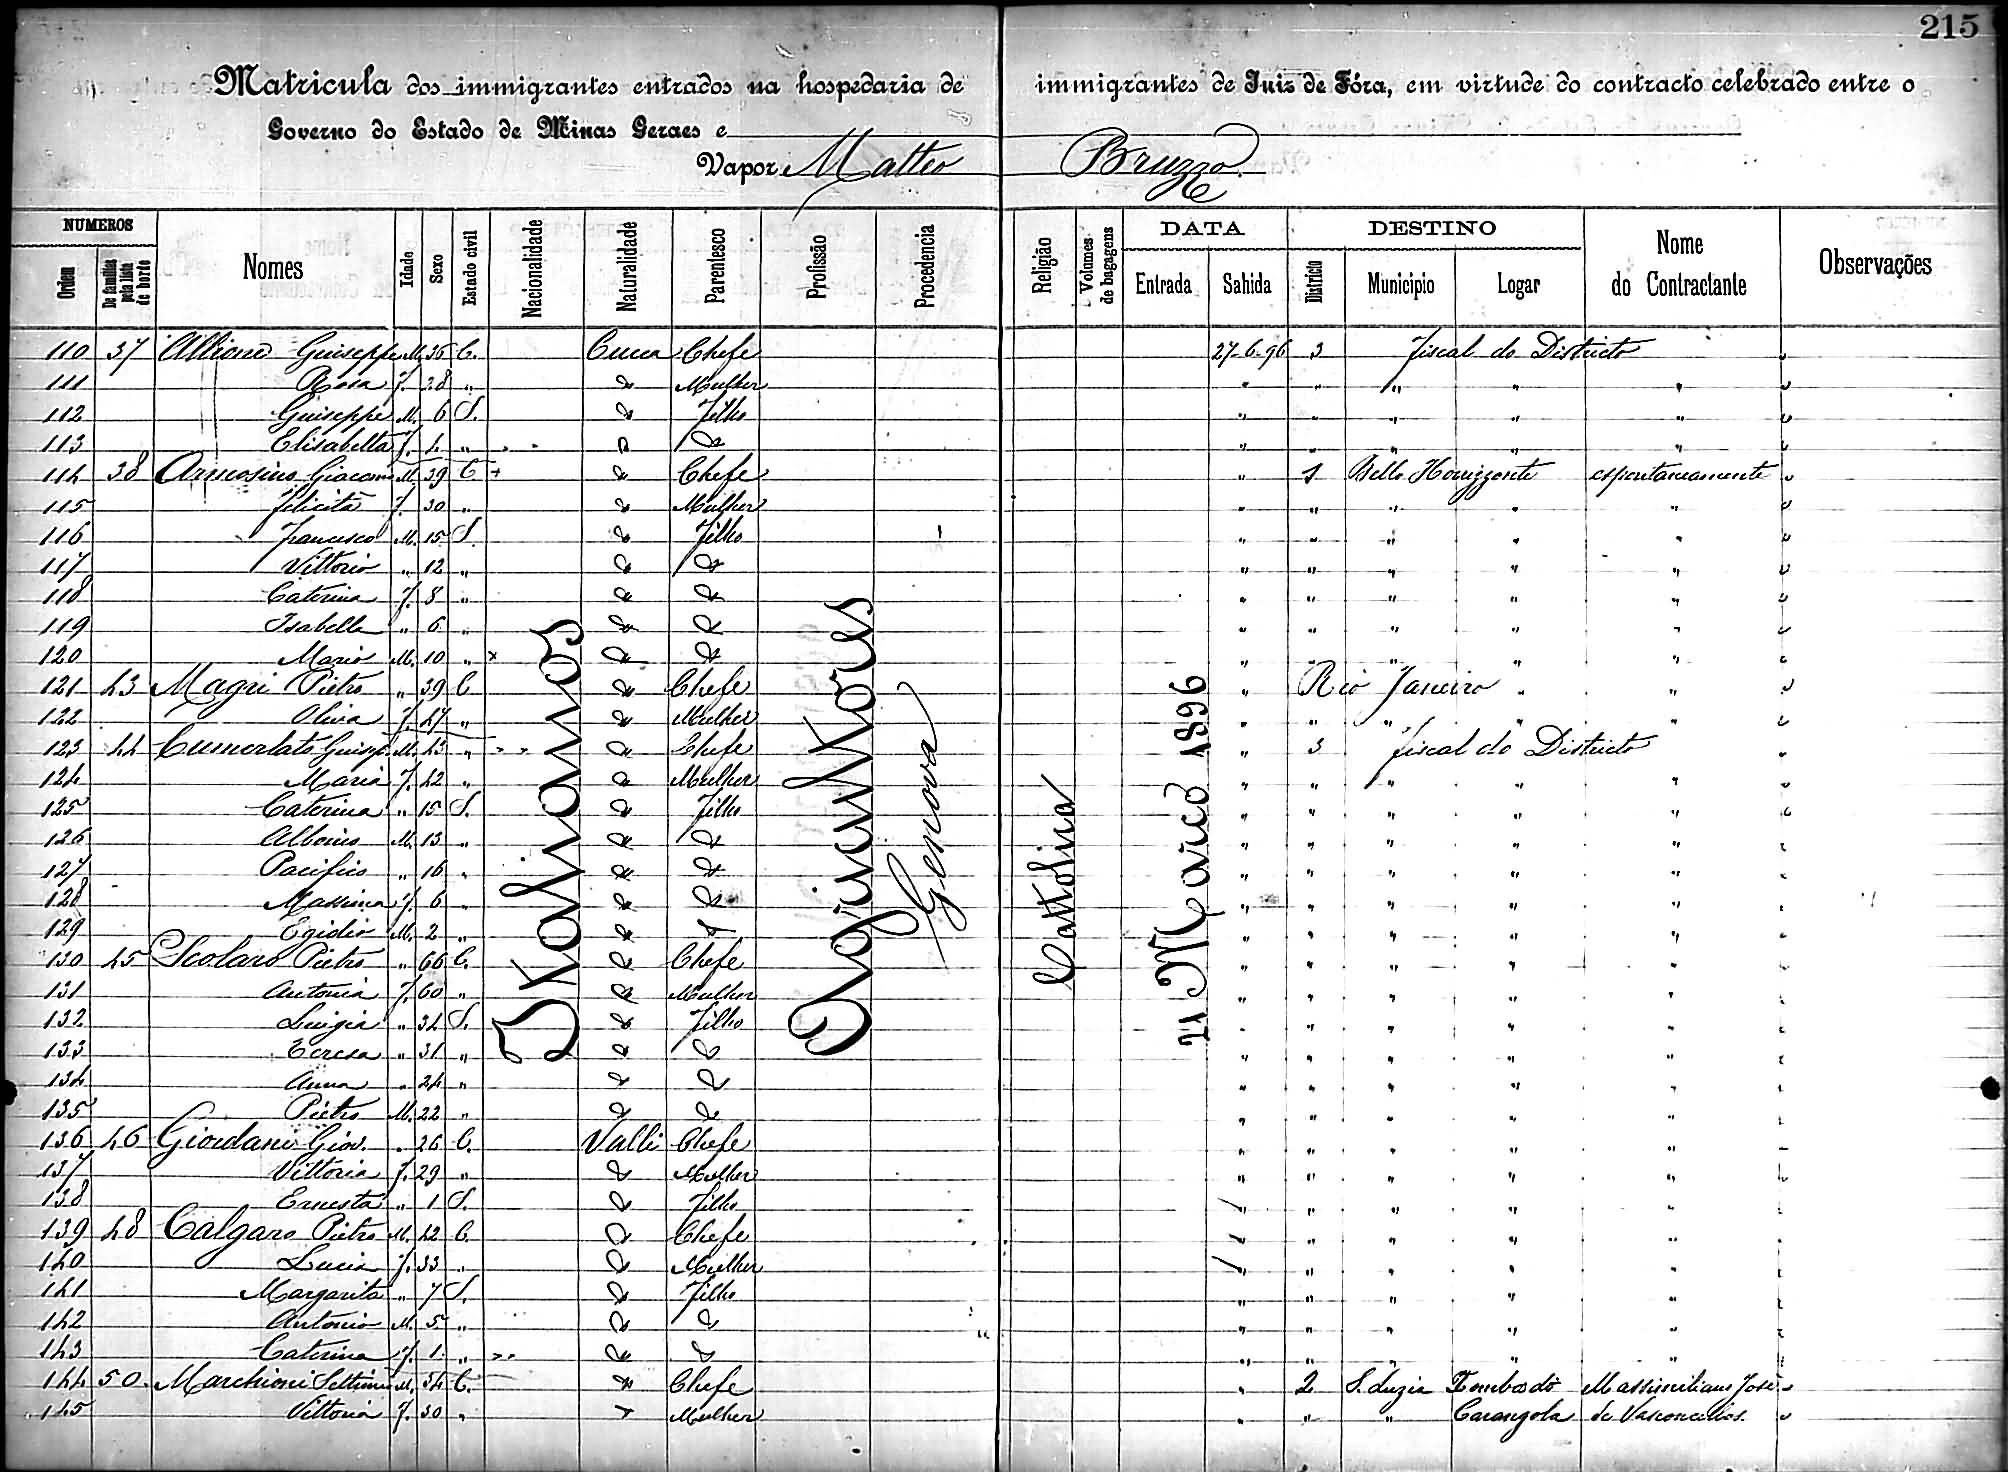 215
Matricula dos immigrantes entrados na hospedaria de immigrantes de Juiz de Fóra, em virtude do contracto celebrado entre o
Governo do Estado de Minas Geraes e
Vapor Matteo Bruzzo
NUMEROS
Ordem
De familias pela lista de bordo
Nomes
Idade
Sexo
Estado civil
Nacionalidade
Naturalidade
Parentesco
Profissão
Procedencia
Religião
Volumes de bagagens
DATA
Entrada
Sahida
DESTINO
Districto
Municipio
Logar
Nome do Contractante
Observações
Italianos
Agricultores
Genova
Cattolica
21 Março 1896
110 37 Allione Guiseppe M. 36 C. Cucca Chefe 27-6-96 3 Fiscal do Districto
111 Rosa F. 28 " Mulher " " " " "
112 Guiseppe M. 6 S. Filho " " " " "
113 Elisabetta F. 4 " " " " " "
114 38 Armosino Giacomo M. 39 C Chefe " 1 Bello Horizzonte espontaneamente
115 Felicita F. 30 " Mulher " " " " "
116 Francesco M. 15 S. Filho " " " " "
117 Vittorio " 12 " " " " " "
118 Caterina F. 8 " " " " " "
119 Isabella " 6 " " " " " "
120 Mario M. 10 " " " " " "
121 43 Magri Pietro " 39 C Chefe " Rio Janeiro " "
122 Olivia F. 47 " Mulher " " " " "
123 44 Cumerlato Guisep. M. 43 " Chefe " 3 Fiscal do Districto
124 Maria F. 42 " Mulher " " " " "
125 Caterina " 15 S. Filho " " " " "
126 Albonio M. 13 " " " " " "
127 Pacifico " 16 " " " " " "
128 Massima F. 6 " " " " " "
129 Egidio M. 2 " " " " " "
130 45 Scolaro Pietro " 66 C. Chefe " " " " "
131 Antonia F. 60 " Mulher " " " " "
132 Luigia " 34 S. Filho " " " " "
133 Teresa " 31 " " " " " "
134 Anna " 24 " " " " " "
135 Pietro M. 22 " " " " " "
136 46 Giordani Giov. " 26 C. Valli Chefe " " " " "
137 Vittoria F. 29 " Mulher " " " " "
138 Ernesta " 1 S. Filho " " " " "
139 48 Calgaro Pietro M. 42 C. Chefe " " " " "
140 Lucia F. 33 " Mulher " " " " "
141 Margarita " 7 S. Filho " " " " "
142 Antonio M. 5 " " " " " "
143 Caterina F. 1 " " " " " "
144 50 Marchioni Settimio M. 34 C. Chefe " 2 S. Luzia Tombos do Massimiliano José
145 Vittoria F. 30 " Mulher " " " Carangola de Vasconcellos.